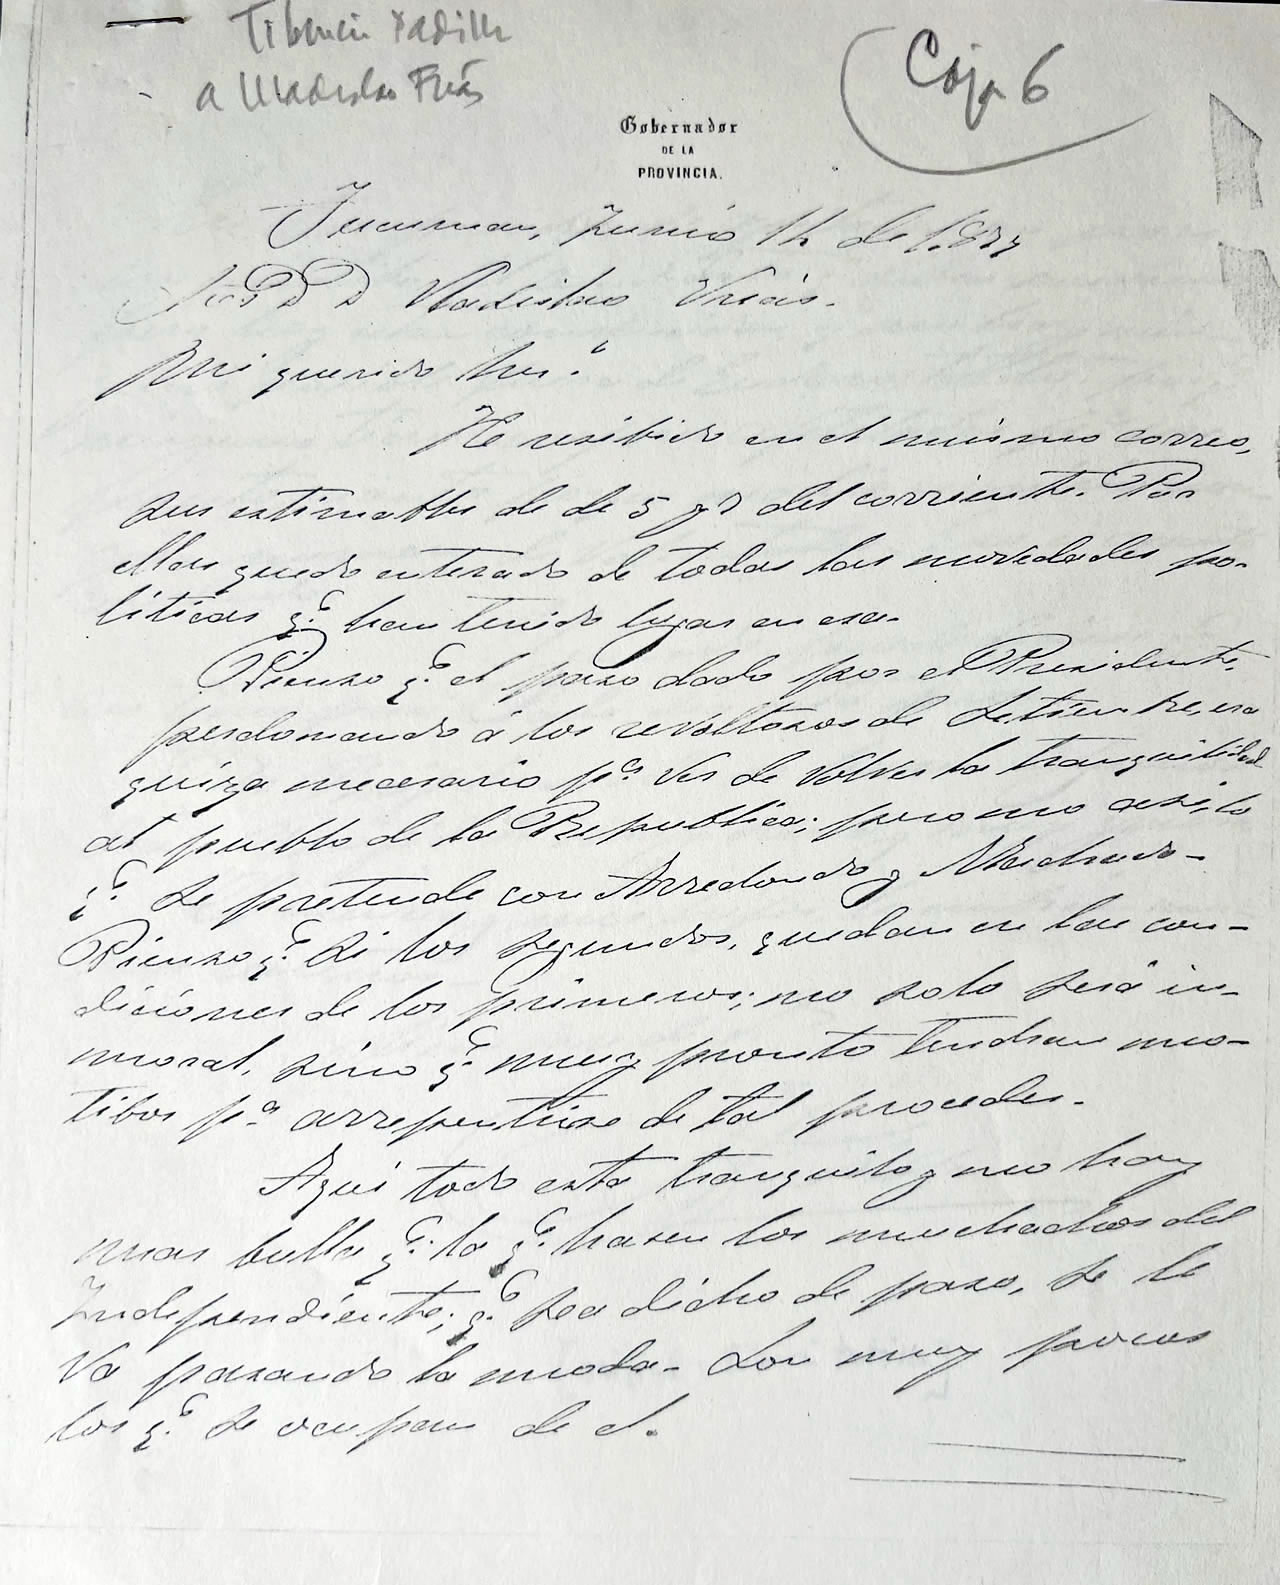 Tiburcio Padilla
a Uladislao Frías
Caja 6
Gobernador
DE LA
PROVINCIA.
Tucuman, Junio 14 de 1.877
Sor D. D. Uladislao Frias.
Mi querido
He resibido en el mismo correo,
sus estimables de de 5 y 7 del corriente. Por
ellas quedo enterado de todas las novedades po-
liticas q.e han tenido lugar en esa.
Pienso q.e el paso dado por el Presidente,
perdonando á los revoltosos de Setiembre, era
quiza necesario p.a ver de volver la tranquilidad
al pueblo de la Republica; pero no asi, lo
q.e se pretende con Arredondo y Machado-
Pienso q.e si los segundos, quedan en las con-
diciones de los primeros; no solo será in-
moral, sino q.e muy pronto tendran mo-
tibos p.a arrepentirse de tal proceder.
Aqui todo esta tranquilo y no hay
mas bulla q.e la q.e hasen los muchachos del
Independiente; q.e sea dicho de paso, se le
va pasando la moda- Son muy pocos
los q.e se ocupan de el.